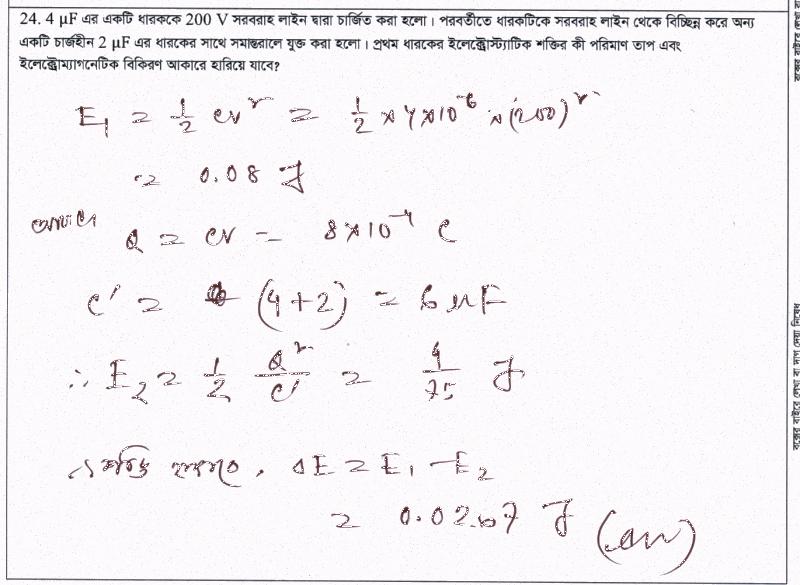 24. 4 μF এর একটি ধারককে 200 V সরবরাহ লাইন দ্বারা চার্জিত করা হলো। পরবর্তীতে ধারকটিকে সরবরাহ লাইন থেকে বিচ্ছিন্ন করে অন্য
একটি চার্জহীন 2 μF এর ধারকের সাথে সমান্তরালে যুক্ত করা হলো। প্রথম ধারকের ইলেক্ট্রোস্ট্যাটিক শক্তির কী পরিমাণ তাপ এবং
ইলেক্ট্রোম্যাগনেটিক বিকিরণ আকারে হারিয়ে যাবে?
E₁ = ½ cv² = ½ × 4×10⁻⁶ × (200)²
= 0.08 J
Q = cv = 8×10⁻⁴ C
C' = (4+2) = 6 μF
∴ E₂ = ½ Q²/C' = 4/75 J
ΔE = E₁ - E₂
= 0.0267 J (Ans)